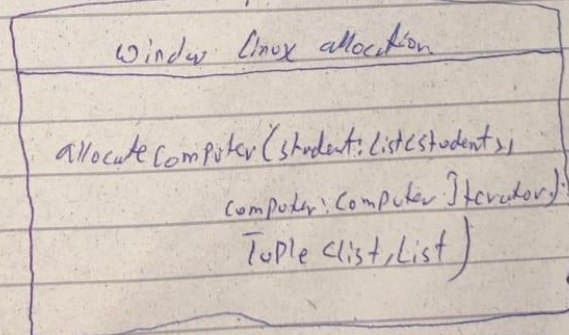 Window Linux allocation
allocateComputer(student:List<students>,
computer:Computer Iterator):
Tuple <List,List)